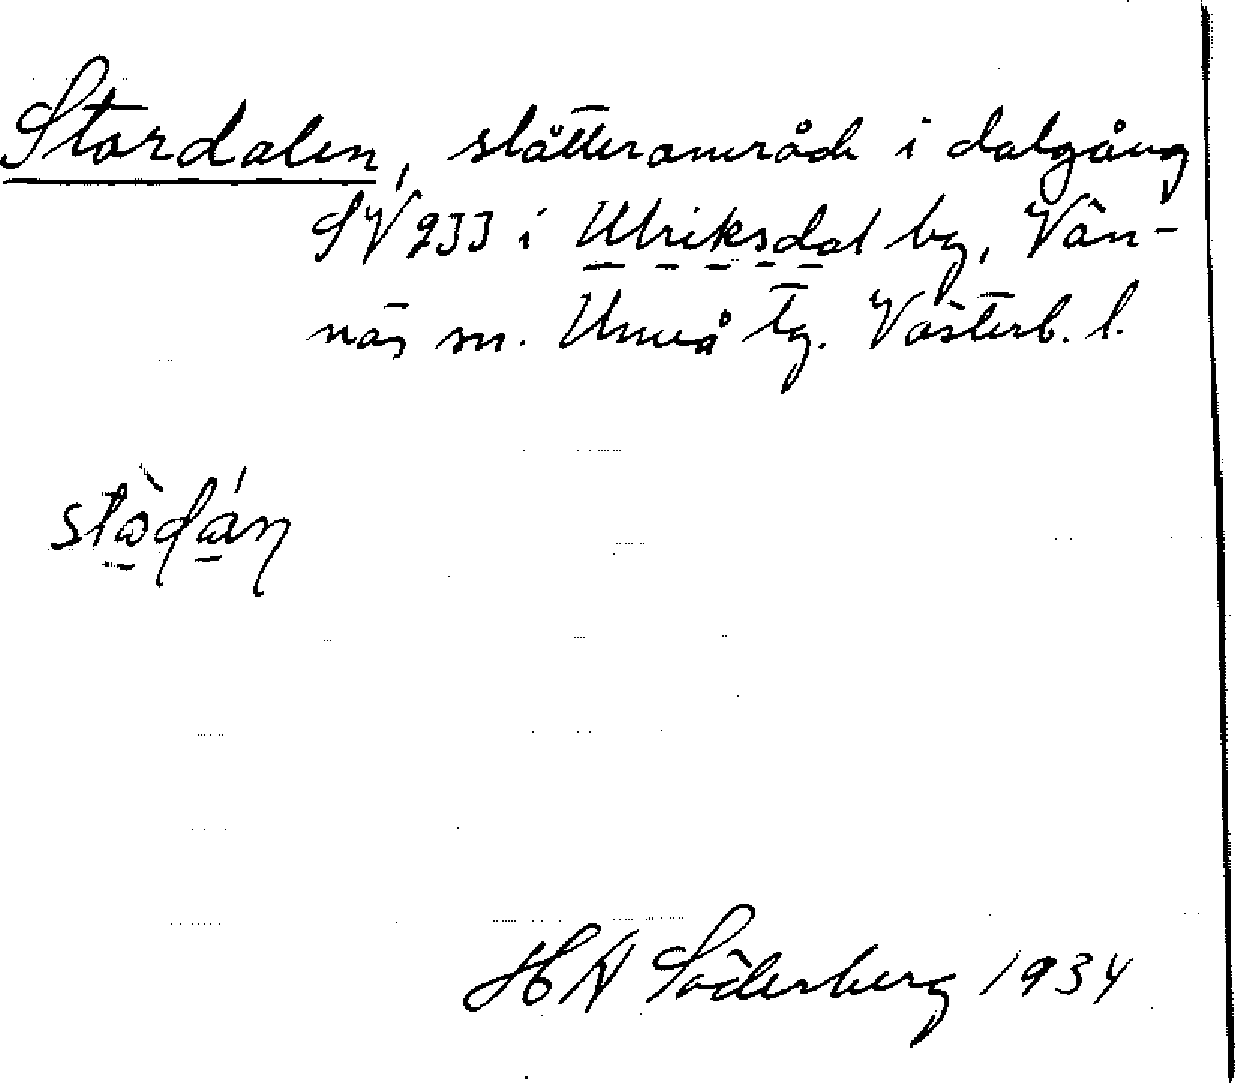 Stordalen, slätterområde i dalgång
SV 233 i Ulriksdal by, Vän-
näs sn. Umeå tg. Västerb. l.
H A Söderberg 1934